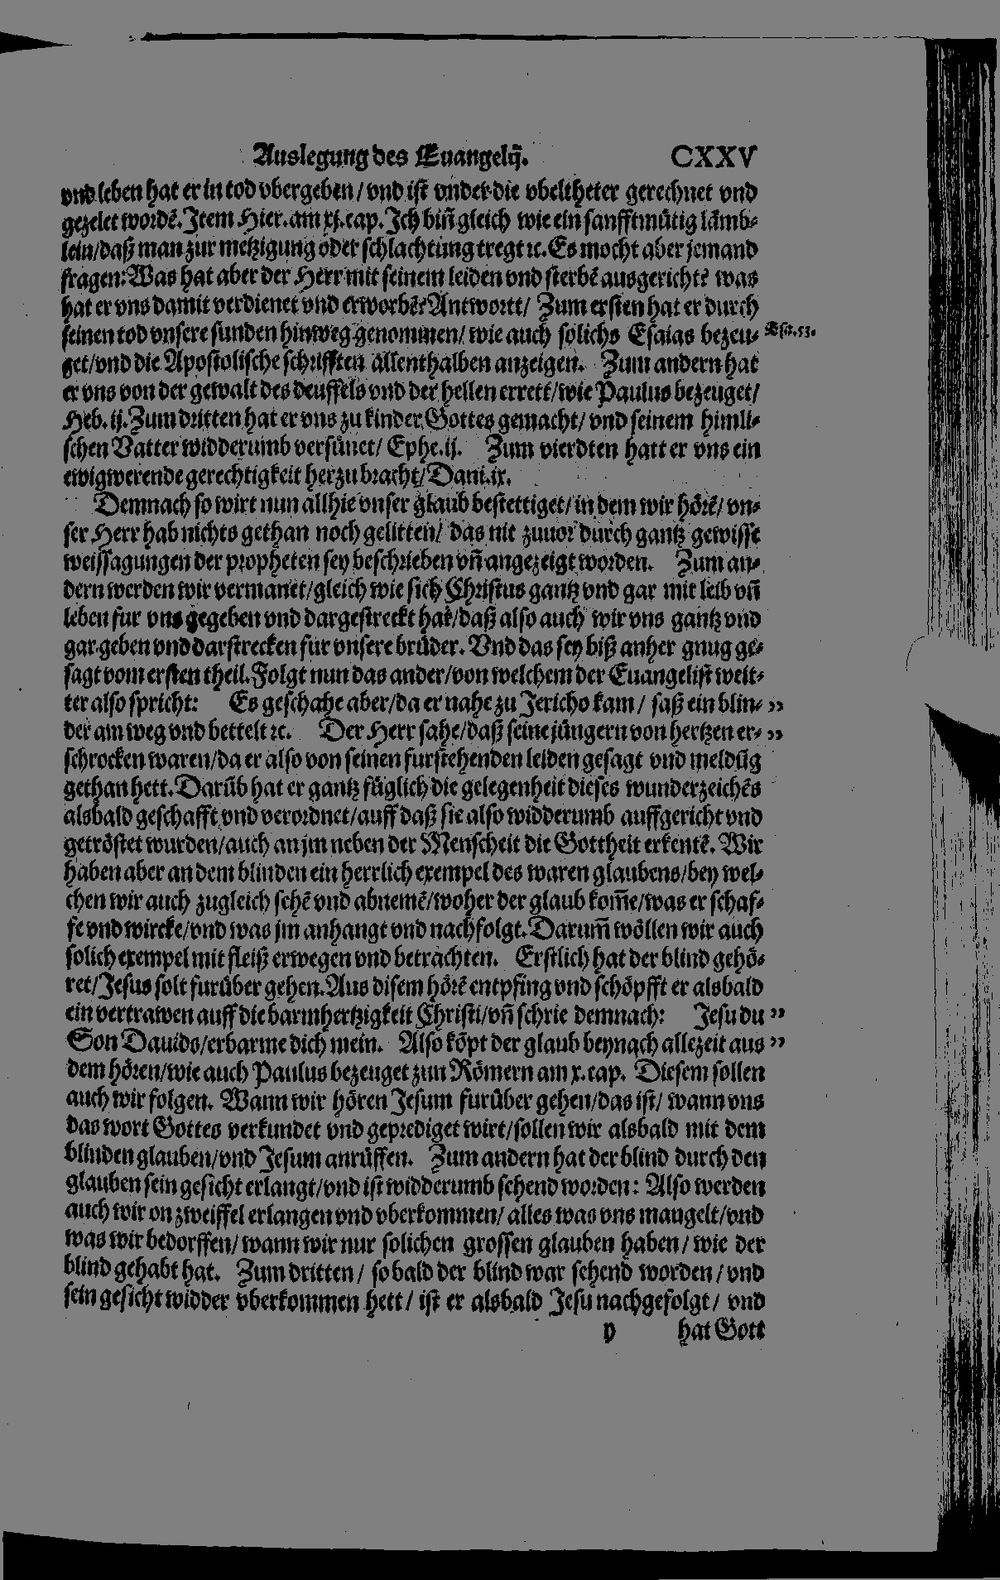 Auslegung des Euangelij̃. CXXV
vnd leben hat er in tod vbergeben / vnd ist vnder die vbeltheter gerechnet vnd
gezelet wordẽ. Item Hier. am xj. cap. Ich biñ gleich wie ein sanfftmütig lämb-
lein / daß man zur metzigung oder schlachtung tregt ꝛc. Es mocht aber jemand
fragen: Was hat aber der Herr mit seinem leiden vnd sterbẽ ausgerichtẽ was
hat er vns damit verdienet vnd erworbẽ? Antwortt / Zum ersten hat er durch
seinen tod vnsere sunden hinweg genommen / wie auch solichs Esaias bezeu- Esa. 53.
get / vnd die Apostolische schrifften allenthalben anzeigen. Zum andern hat
er vns von der gewalt des deuffels vnd der hellen errett / wie Paulus bezeuget /
Heb. ij. Zum dritten hat er vns zu kinder Gottes gemacht / vnd seinem himli-
schen Vatter widderumb versünet / Ephe. ij. Zum vierdten hatt er vns ein
ewigwerende gerechtigkeit herzu bracht / Dani. ix.
Demnach so wirt nun allhie vnser glaub bestettiget / in dem wir hörẽ / vn-
ser Herr hab nichts gethan noch gelitten / das nit zuuor durch gantz gewisse
weissagungen der propheten sey beschrieben vñ angezeigt worden. Zum an-
dern werden wir vermanet / gleich wie sich Christus gantz vnd gar mit leib vñ
leben fur vns gegeben vnd dargestreckt hat / daß also auch wir vns gantz vnd
gar geben vnd darstrecken für vnsere brüder. Vnd das sey biß anher gnug ge-
sagt vom ersten theil. Folgt nun das ander / von welchem der Euangelist weit-
ter also spricht: Es geschahe aber / da er nahe zu Jericho kam / saß ein blin- „
der am weg vnd bettelt ꝛc. Der Herr sahe / daß seine jüngern von hertzen er- „
schrocken waren / da er also von seinen furstehenden leiden gesagt vnd meldũg
gethan hett. Darũb hat er gantz füglich die gelegenheit dieses wunderzeichẽs
alsbald geschafft vnd verordnet / auff daß sie also widderumb auffgericht vnd
getröstet wurden / auch an jm neben der Menscheit die Gottheit erkentẽ. Wir
haben aber an dem blinden ein herrlich exempel des waren glaubens / bey wel-
chen wir auch zugleich sehẽ vnd abnemẽ / woher der glaub kom̃e / was er schaf-
fe vnd wircke / vnd was jm anhangt vnd nachfolgt. Darum̃ wöllen wir auch
solich exempel mit fleiß erwegen vnd betrachten. Erstlich hat der blind gehö-
ret / Jesus solt furüber gehen. Aus disem hörẽ entpfing vnd schöpfft er alsbald
ein vertrawen auff die barmhertzigkeit Christi / vñ schrie demnach: Jesu du „
Son Dauids / erbarme dich mein. Also köpt der glaub beynach allezeit aus „
dem hören / wie auch Paulus bezeuget zun Römern am x. cap. Diesem sollen
auch wir folgen. Wann wir hören Jesum furüber gehen / das ist / wann vns
das wort Gottes verkundet vnd geprediget wirt / sollen wir alsbald mit dem
blinden glauben / vnd Jesum anrüffen. Zum andern hat der blind durch den
glauben sein gesicht erlangt / vnd ist widderumb sehend worden: Also werden
auch wir on zweiffel erlangen vnd vberkommen / alles was vns mangelt / vnd
was wir bedorffen / wann wir nur solichen grossen glauben haben / wie der
blind gehabt hat. Zum dritten / so bald der blind war sehend worden / vnd
sein gesicht widder vberkommen hett / ist er alsbald Jesu nachgefolgt / vnd
y hat Gott